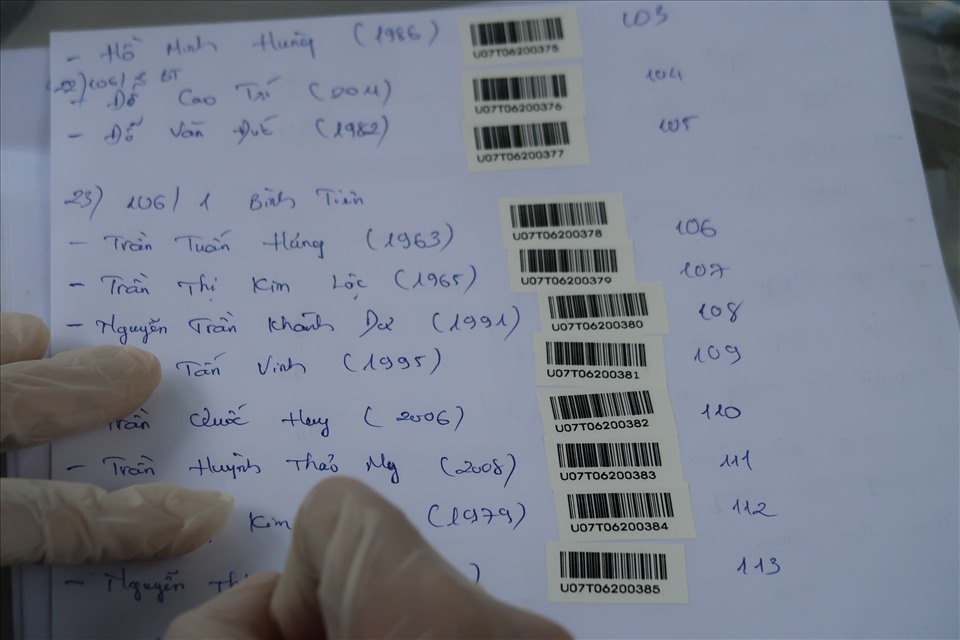 - Hồ Minh Hưng (1986) U07T06200375 103
(22) 106/8 BT
- Đỗ Cao Trí (2011) U07T06200376 104
- Đỗ Văn Đức (1982) U07T06200377 105
23) 106/1 Bình Tiên
- Trần Tuấn Háng (1963) U07T06200378 106
- Trần Thị Kim Lộc (1965) U07T06200379 107
- Nguyễn Trần Khánh (1991) U07T06200380 108
Tấn Vinh (1995) U07T06200381 109
Trần Quốc Huy (2006) U07T06200382 110
- Trần Huỳnh Thảo My (2008) U07T06200383 111
Kim (1979) U07T06200384 112
- Nguyễn ) U07T06200385 113